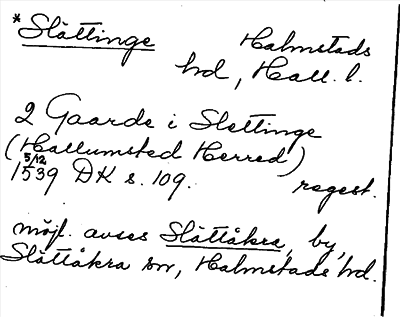 * Slättinge Halmstads
hd, Hall. l.
2 Gaarde i Slettinge
(Hallumsted Herred)
5/12
1539 DK s. 109. regest.
möjl. avses Slättåkra, by,
Slättåkra sn, Halmstads hd.